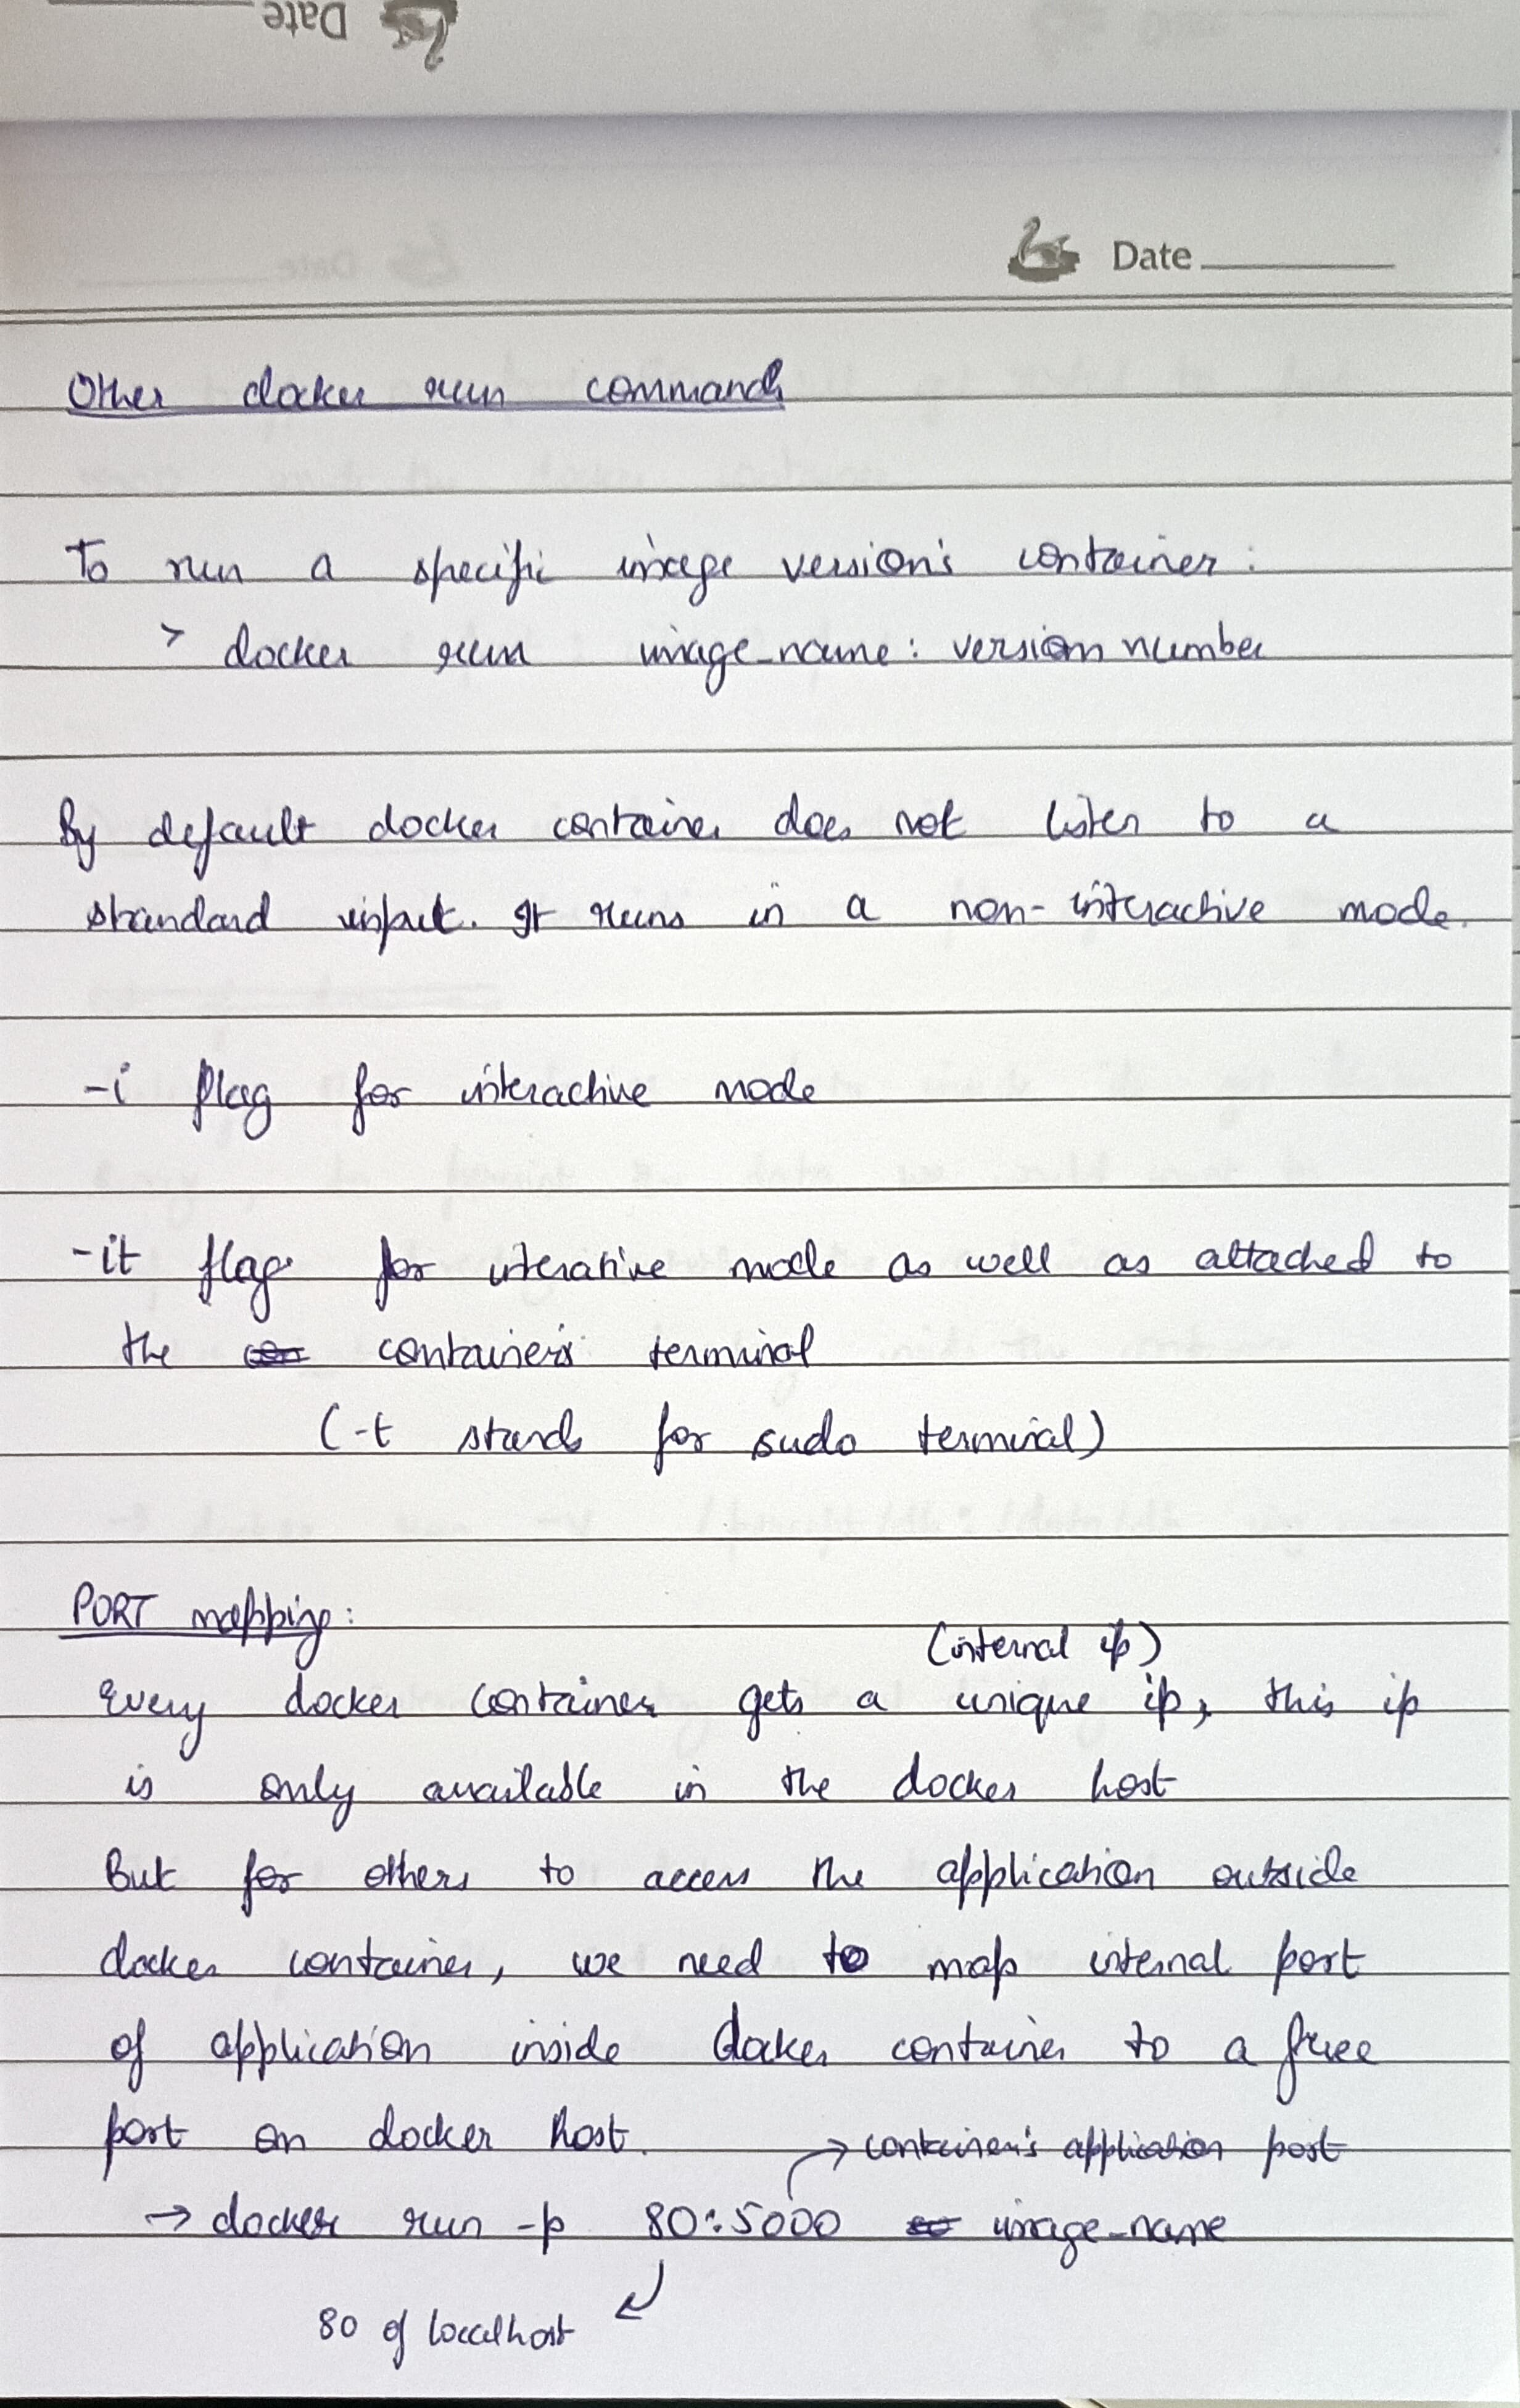 Date
Date
Other docker run commands
To run a specific image version's container:
> docker run image_name: version number
By default docker container does not listen to a
standard input. It runs in a non-interactive mode.
-i flag for interactive mode
-it flag for interative mode as well as attached to
the container's terminal
(-t stands for sudo terminal)
PORT mapping:
(internal ip)
Every docker container gets a unique ip, this ip
is only available in the docker host
But for others to access the application outside
docker container, we need to map internal port
of application inside docker container to a free
port on docker host.
→ container's application port
→ docker run -p 80:5000 image_name
80 of localhost